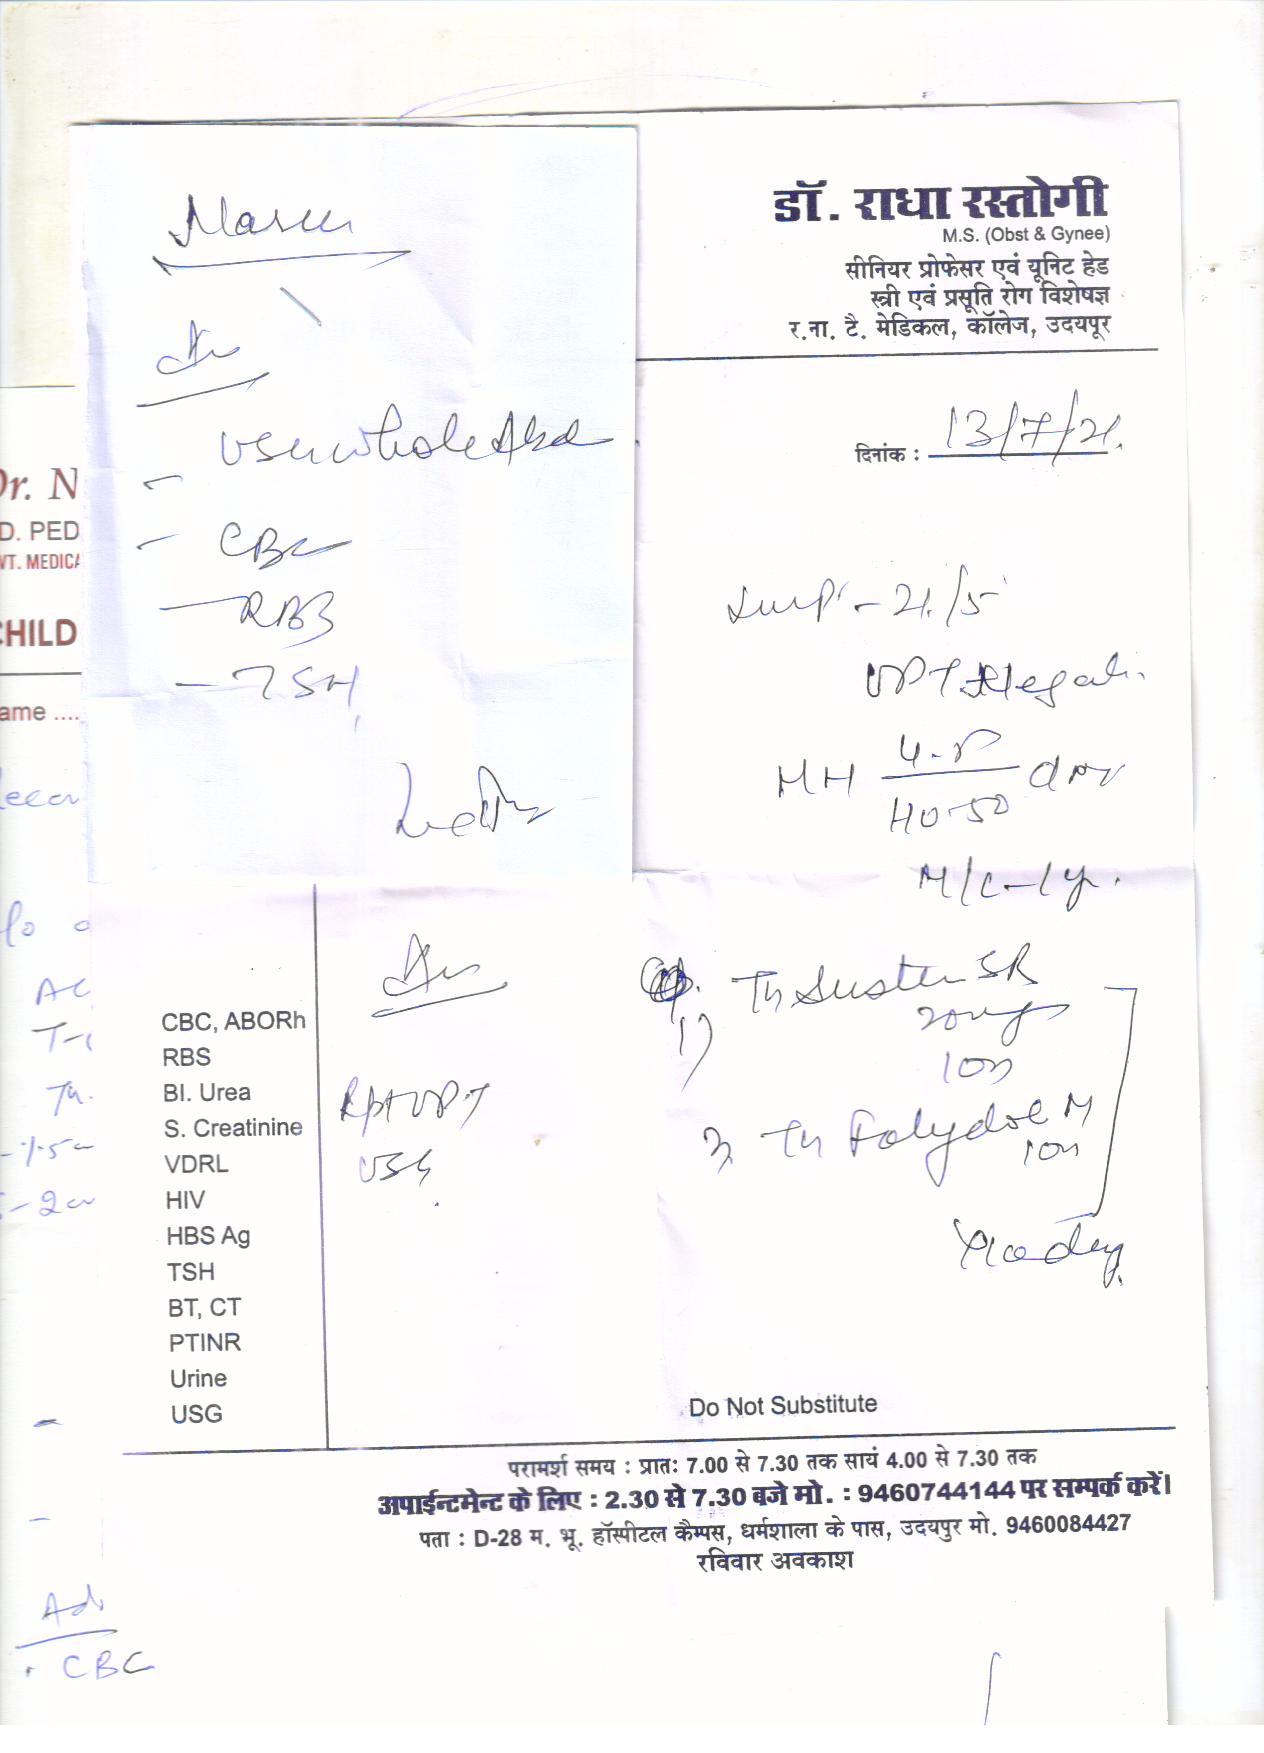 डॉ. राधा रस्तोगी
M.S. (Obst & Gynee)
सीनियर प्रोफेसर एवं यूनिट हेड
स्त्री एवं प्रसूति रोग विशेषज्ञ
र.ना. टै. मेडिकल, कॉलेज, उदयपूर
दिनांक : 13/7/21.
- USG whole Abd
- CBC
- RBS
- TSH
LMP - 21/5
UPT Negati
MH 4-5 / 40-50 days
M/C - 1 yr.
Adv
Rpt UPT
USG
1) Tn Susten SR
200mg
10n
2) Tn Folydol M
10n
CBC, ABORh
RBS
Bl. Urea
S. Creatinine
VDRL
HIV
HBS Ag
TSH
BT, CT
PTINR
Urine
USG
Do Not Substitute
परामर्श समय : प्रातः 7.00 से 7.30 तक सायं 4.00 से 7.30 तक
अपाईन्टमेन्ट के लिए : 2.30 से 7.30 बजे मो. : 9460744144 पर सम्पर्क करें।
पता : D-28 म. भू. हॉस्पीटल कैम्पस, धर्मशाला के पास, उदयपुर मो. 9460084427
रविवार अवकाश
Dr. N
D. PED
VT. MEDICA
CHILD
ame ....
Adv
. CBC